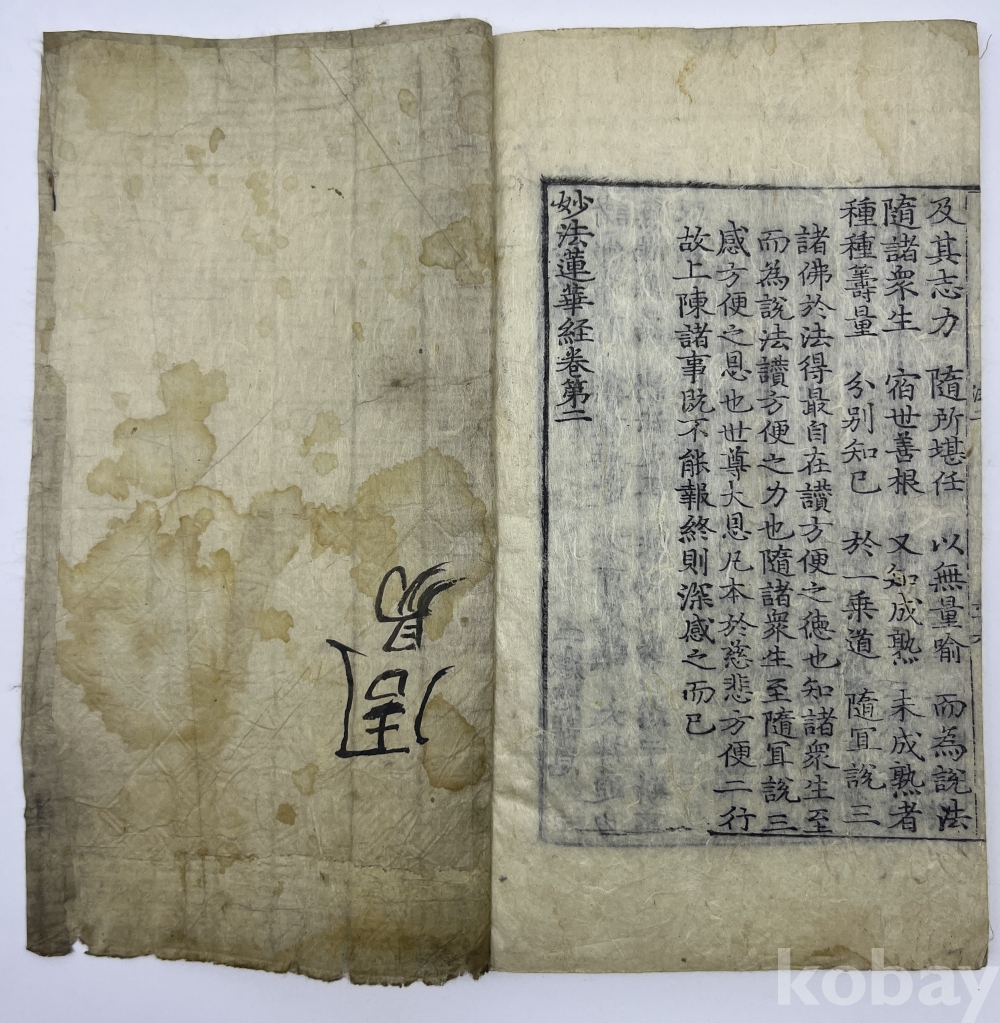 及其志力 隨所堪任 以無量喻 而為說法
隨諸衆生 宿世善根 又知成熟 未成熟者
種種籌量 分別知已 於一乗道 隨冝說三
諸佛於法得最自在讃方便之徳也知諸衆生至
而為說法讃方便之力也隨諸衆生至隨冝說三
感方便之恩也世尊大恩凡本於慈悲方便二行
故上陳諸事旣不能報終則深感之而已
妙法蓮華経卷第二
周易
kobay